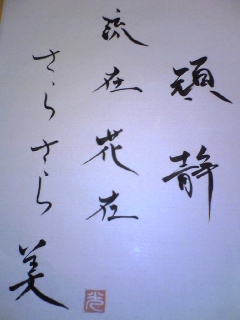 頑静
流在花在
さらさら美